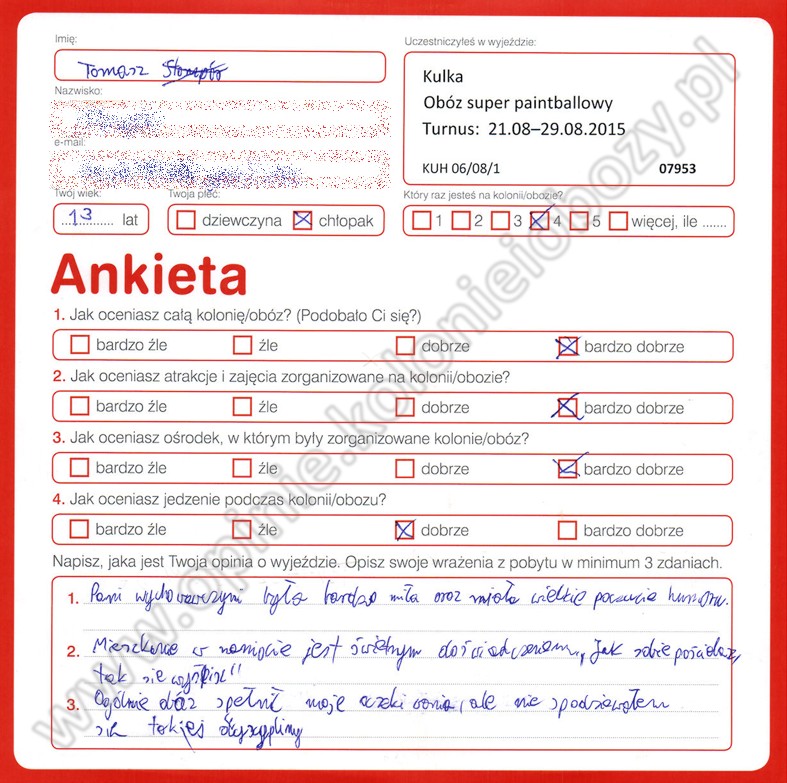 Imię:
Uczestniczyłeś w wyjeździe:
Tomasz
Kulka
Nazwisko:
Obóz super paintballowy
Turnus: 21.08–29.08.2015
e-mail:
KUH 06/08/1 07953
Twój wiek: Twoja płeć: Który raz jesteś na kolonii/obozie?
13 lat dziewczyna chłopak 1 2 3 4 5 więcej, ile .......
Ankieta
1. Jak oceniasz całą kolonię/obóz? (Podobało Ci się?)
bardzo źle źle dobrze bardzo dobrze
2. Jak oceniasz atrakcje i zajęcia zorganizowane na kolonii/obozie?
bardzo źle źle dobrze bardzo dobrze
3. Jak oceniasz ośrodek, w którym były zorganizowane kolonie/obóz?
bardzo źle źle dobrze bardzo dobrze
4. Jak oceniasz jedzenie podczas kolonii/obozu?
bardzo źle źle dobrze bardzo dobrze
Napisz, jaka jest Twoja opinia o wyjeździe. Opisz swoje wrażenia z pobytu w minimum 3 zdaniach.
1. Pani wychowawczyni była bardzo miła oraz miała wielkie poczucie humoru.
2. Mieszkanie w namiocie jest świetnym doświadczeniem, „Jak sobie pościelasz,
tak się wyśpisz"
3. Ogólnie obóz spełnił moje oczekiwania, ale nie spodziewałem
się takiej dyscypliny
www.opinie.kolonieiobozy.pl